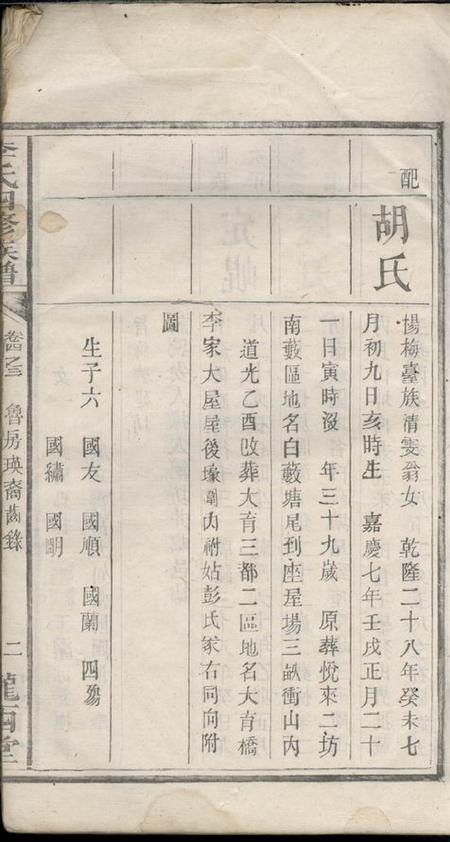 配
胡氏
楊梅臺族清雯翁女 乾隆二十八年癸未七
月初九日亥時生 嘉慶七年壬戌正月二十
一日寅時沒 年三十九歲 原葬悅來二坊
南藪區地名白藪塘尾到座屋場三畝衝山內
道光乙酉改葬大育三都二區地名大育橋
李家大屋屋後壕圍內祔姑彭氏冢右同向附
圖
生子六 國友 國順 國蘭 四殤
國繡 國明
李氏四修族譜
卷四之三 魯房瑛裔齒錄
二 隴西堂